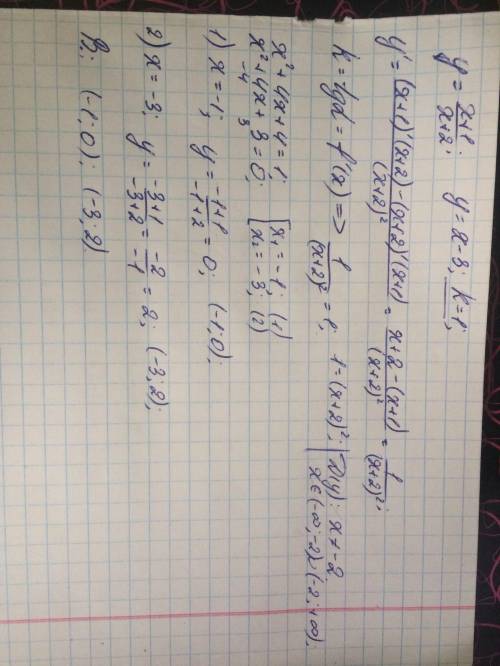 y = (x+1)/(x+2); y = x - 3; k = 1;
y' = ((x+1)'(x+2) - (x+2)'(x+1))/(x+2)² = (x+2 - (x+1))/(x+2)² = 1/(x+2)²;
k = tgα = f'(x) => 1/(x+2)² = 1; 1 = (x+2)²; | D(y): x ≠ -2
x ∈ (-∞; -2) ∪ (-2; +∞);
x² + 4x + 4 = 1;
x² + 4x + 3 = 0; [ x₁ = -1; (1)
-4 3 [ x₂ = -3; (2)
1) x = -1; y = (-1+1)/(-1+2) = 0; (-1; 0);
2) x = -3; y = (-3+1)/(-3+2) = -2/-1 = 2; (-3; 2);
В: (-1; 0); (-3; 2)